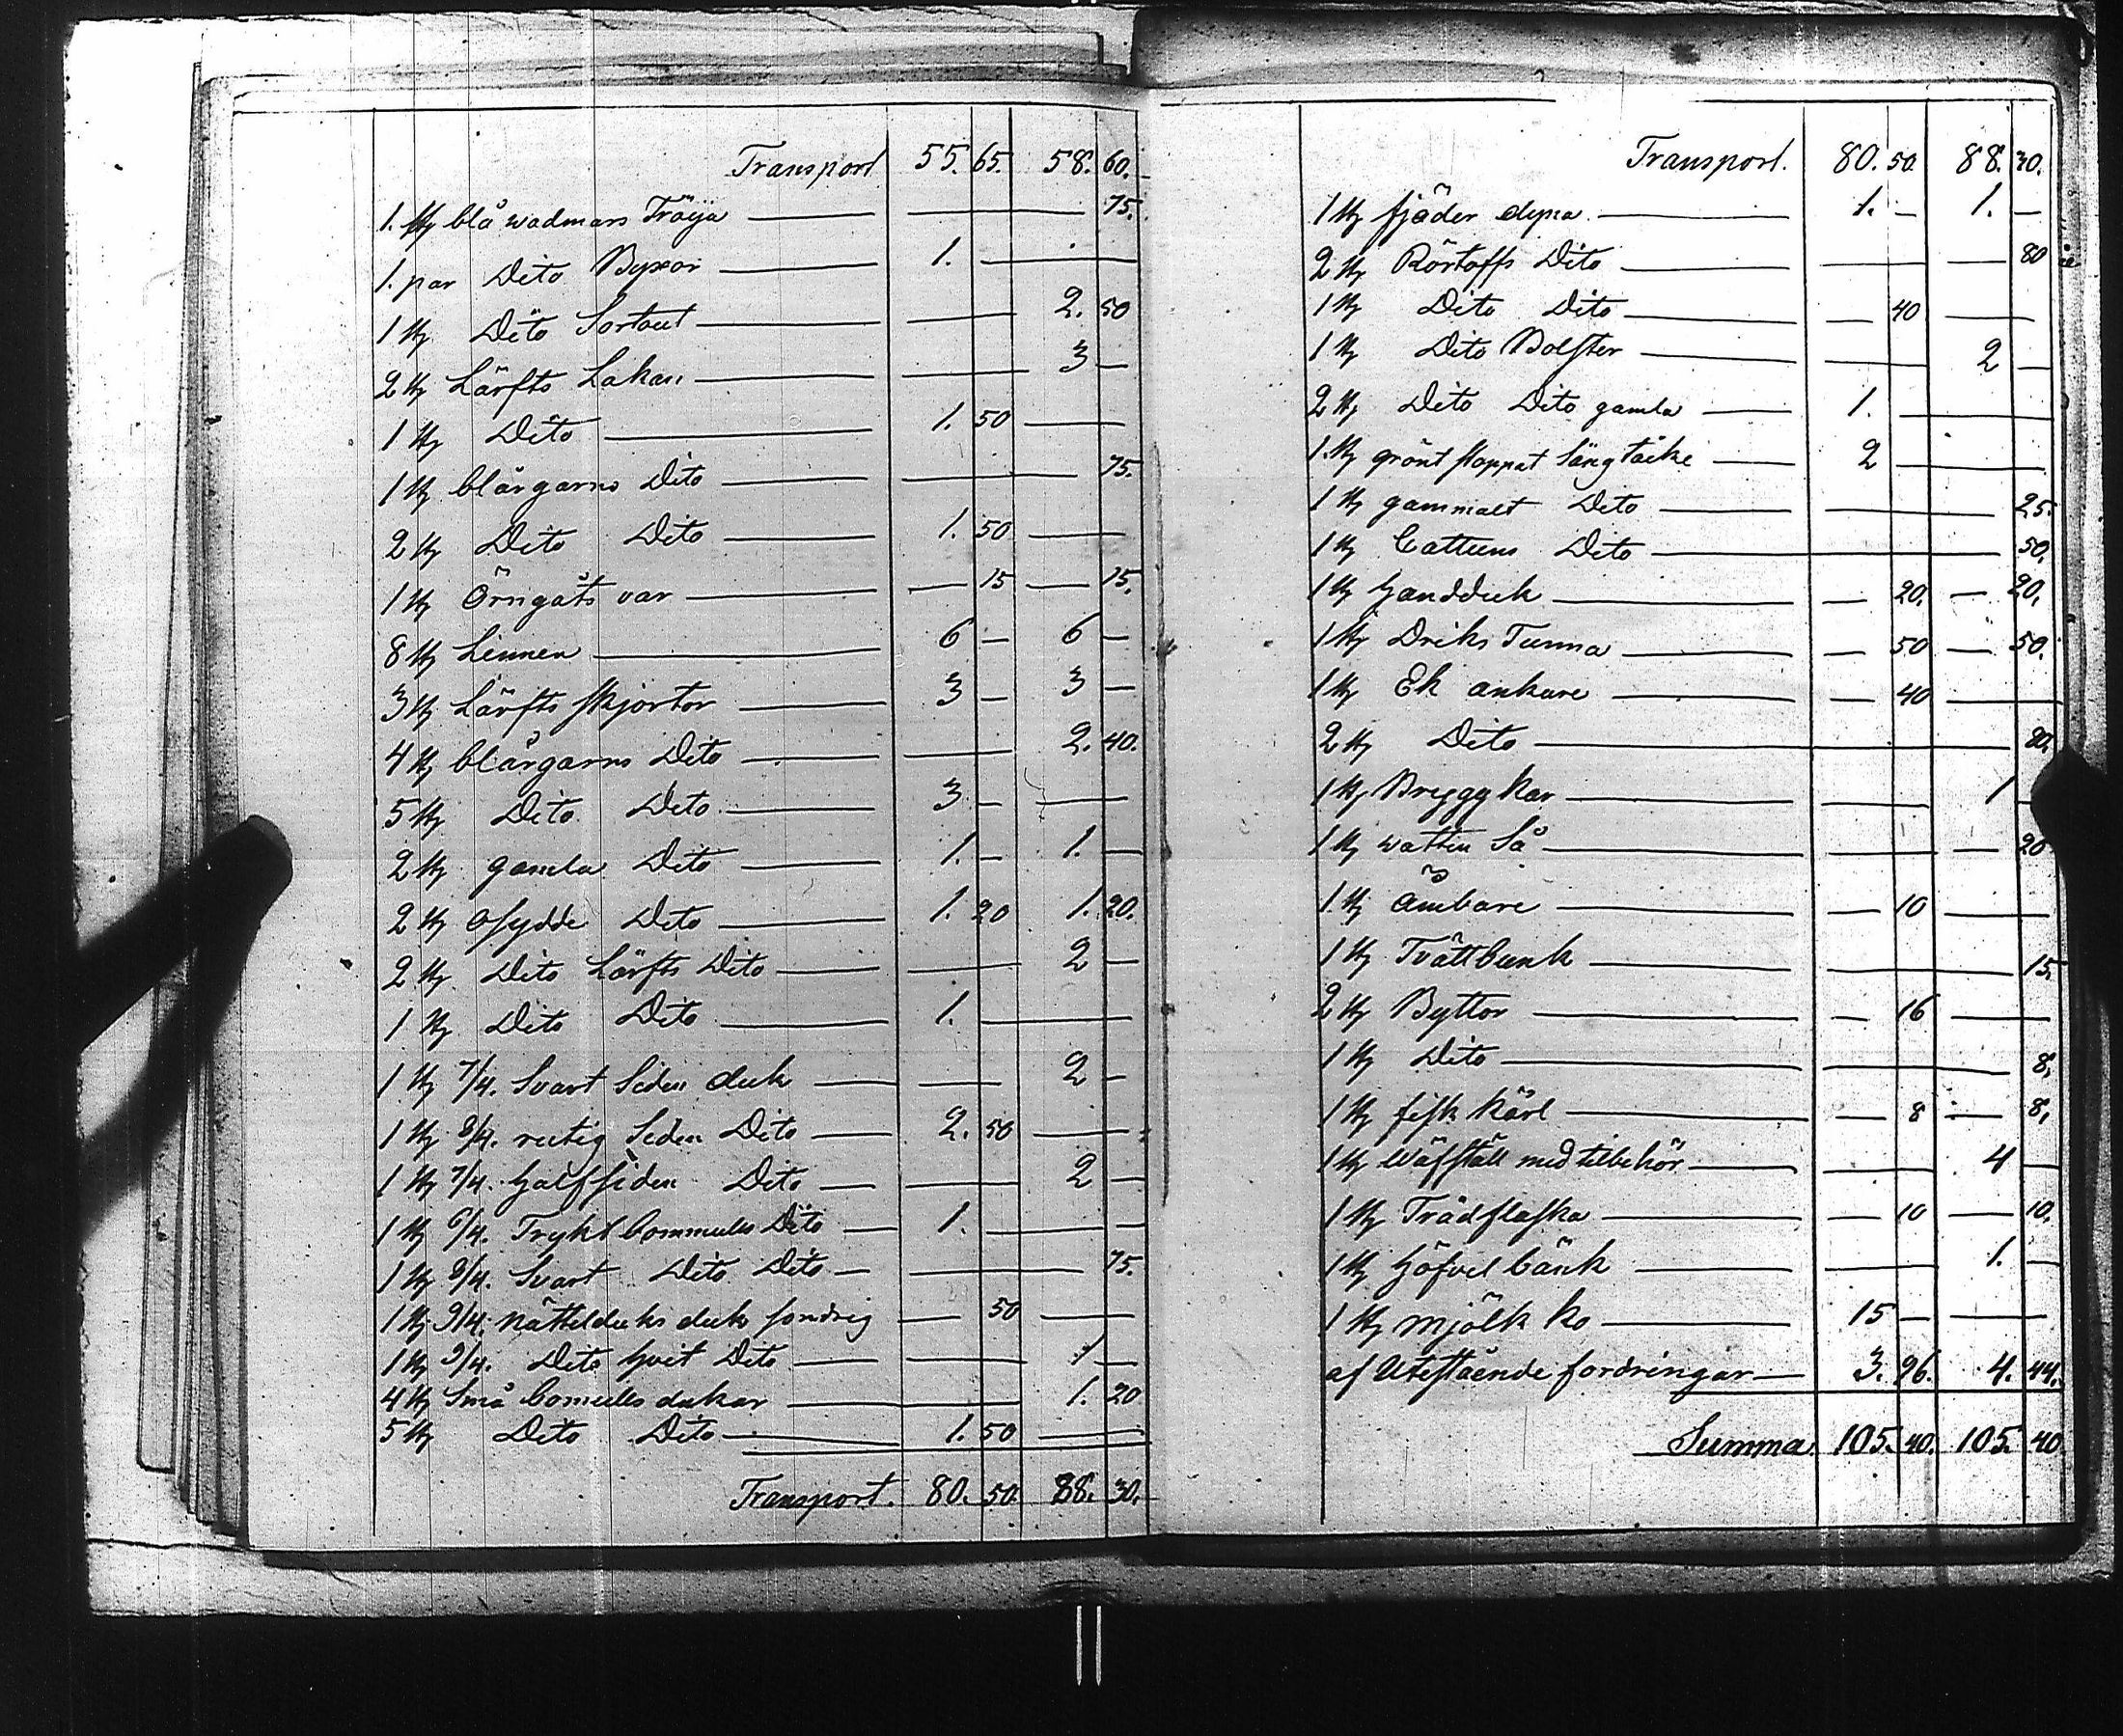 Transport 55. 65. 58. 60.
1. st blå wadmars Tröja — — 75.
1. par Dito Byxor — 1. —
1 st Dito Sortout — — 2. 50
2 st Lärfts Lakan — — 3 —
1 st Dito — 1. 50 —
1 st blårgarns Dito — — 75.
2 st Dito Dito — 1. 50 —
1 st Örngåts var — — 15 — 15.
8 st Linnen — 6 — 6 —
3 st Lärfts skjortor — 3 — 3 —
4 st blårgarns Dito — — 2. 40.
5 st Dito Dito — 3 — —
2 st gamla Dito — 1. — 1. —
2 st osydde Dito — 1. 20 1. 20.
2 st Dito Lärfts Dito — — 2 —
1 st Dito Dito — 1. —
1 st 7/4. Svart Siden duk — — 2 —
1 st 8/4. rutig Siden Dito — 2. 50 —
1 st 7/4. halfsiden Dito — — 2 —
1 st 6/4. Trykt bommulls Dito — 1. —
1 st 8/4. Svart Dito Dito — — 75.
1 st 9/4. Nätteldúks duk — 50 —
1 st 9/4. Dito hvit Dito — — 1 —
4 st Små bomulls dukar — — 1. 20
5 st Dito Dito — 1. 50 —
Transport. 80. 50. 88. 30.
Transport. 80. 50. 88. 30.
1 st fjäder dyna — 1. — 1. —
2 st Dito — — 80
1 st Dito Dito — — 40 —
1 st Dito Bolster — — 2 —
2 st Dito Dito gamla — 1. —
1. st grönt stoppat Sängtäcke — 2 —
1 st gammalt Dito — — 25.
1 st Cattuns Dito — 50.
1 st handduk — — 20. — 20.
1 st Driks Tunna — — 50 — 50.
1 st Ek ankare — — 40 —
2 st Dito — 80.
1 st Brygg kar — — 1 —
1 st watten Så — — 20
1. st Ämbare — — 10 —
1 st Tvättbunk — — 15.
2 st Byttor — — 16 —
1 st Dito — — 8.
1 st fisk kärl — — 8 — 8.
1 st Wäfställ med tilbehör — — 4 —
1 st Trädflaska — — 10 — 10.
1 st höfvel bänk — — 1. —
1 st mjölk ko — 15 — —
af Utestående fordringar — 3. 96. 4. 44.
Summa. 105. 40. 105. 40